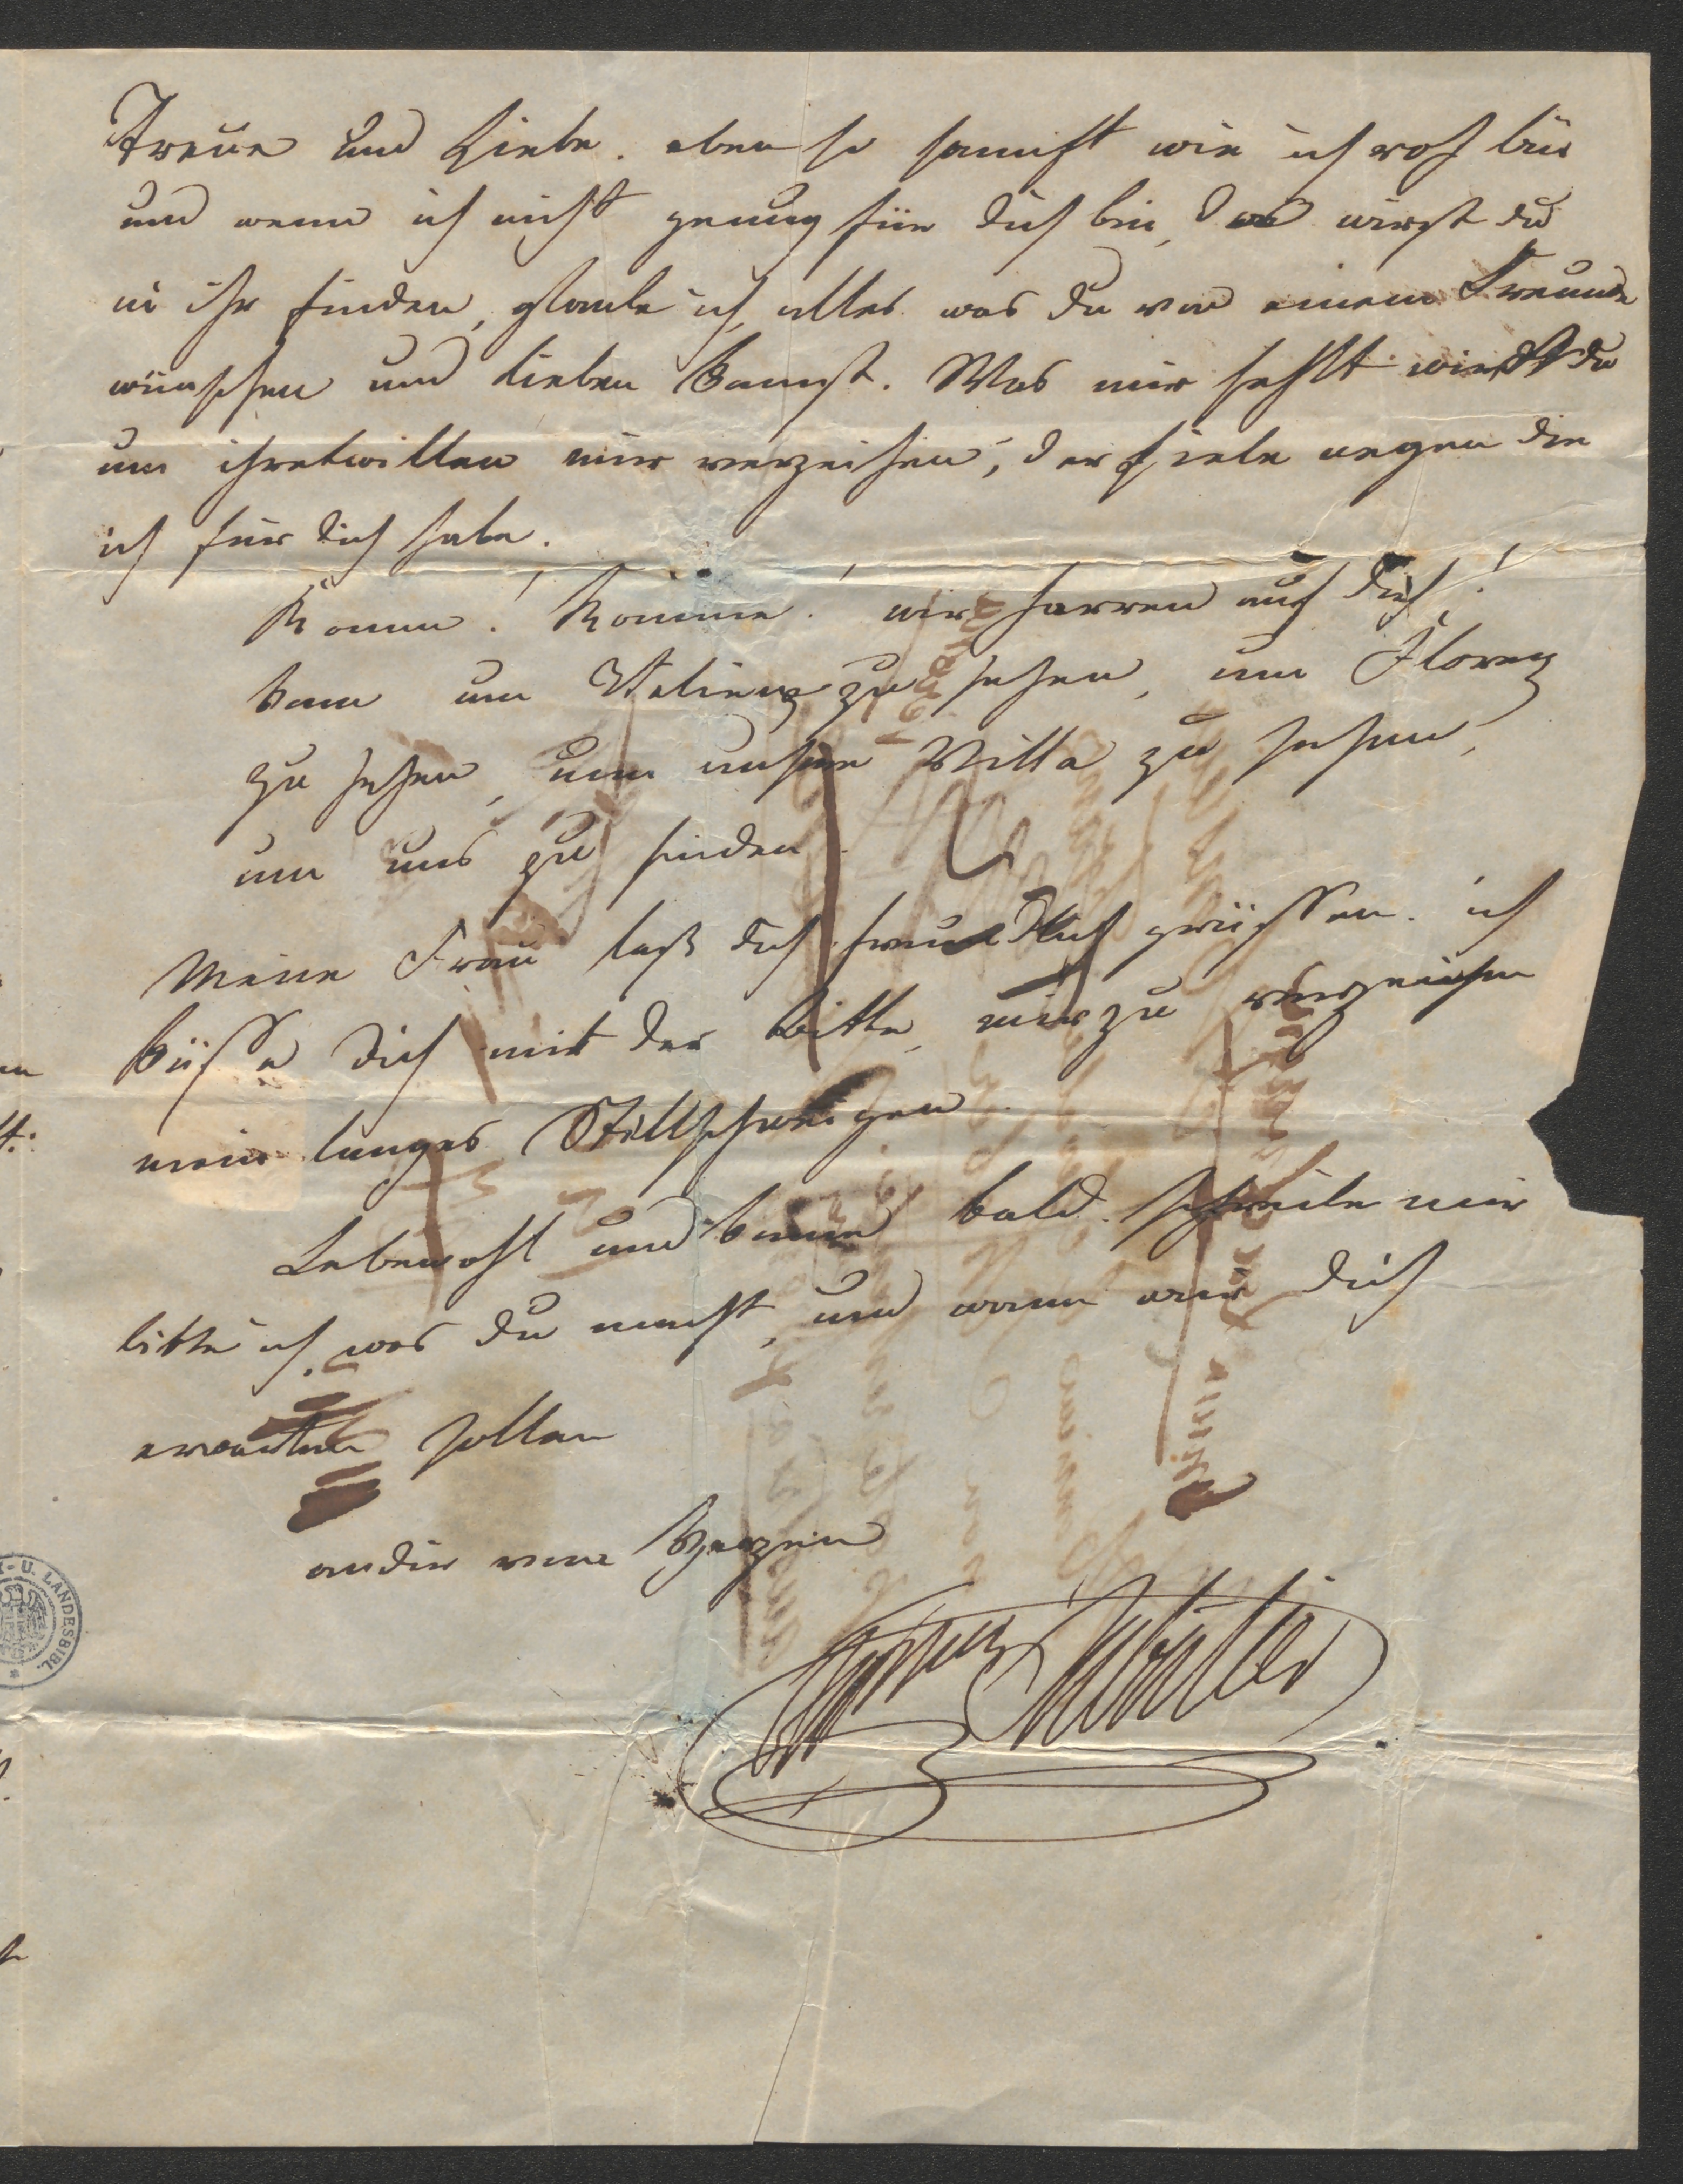 Treue und Liebe. eben so sanft wie ich roh bin
und wenn ich nicht genug für dich bin, das wirst du
in ihr finden, glaube ich, alles was du von einem Freunde
wünschen und lieben kannst. Was mir fehlt wirst du
um ihretwillen mir verzeihen, der Liebe wegen die
ich für dich habe.
Komm! Komme! wir harren auf dich!
komm um Italien zu sehen, um Florenz
zu sehen, um unsere Villa zu sehen,
um uns zu finden.
Meine Frau laßt dich freundlich grüssen. ich
küsse dich mit der Bitte, mir zu verzeihen
mein langes Stillschweigen.
Lebewohl und komme bald. schreibe mir
bitte ich, was du machst, und wann wir dich
erwarten sollen
an dir von Herzen
U. LANDESBIBL.